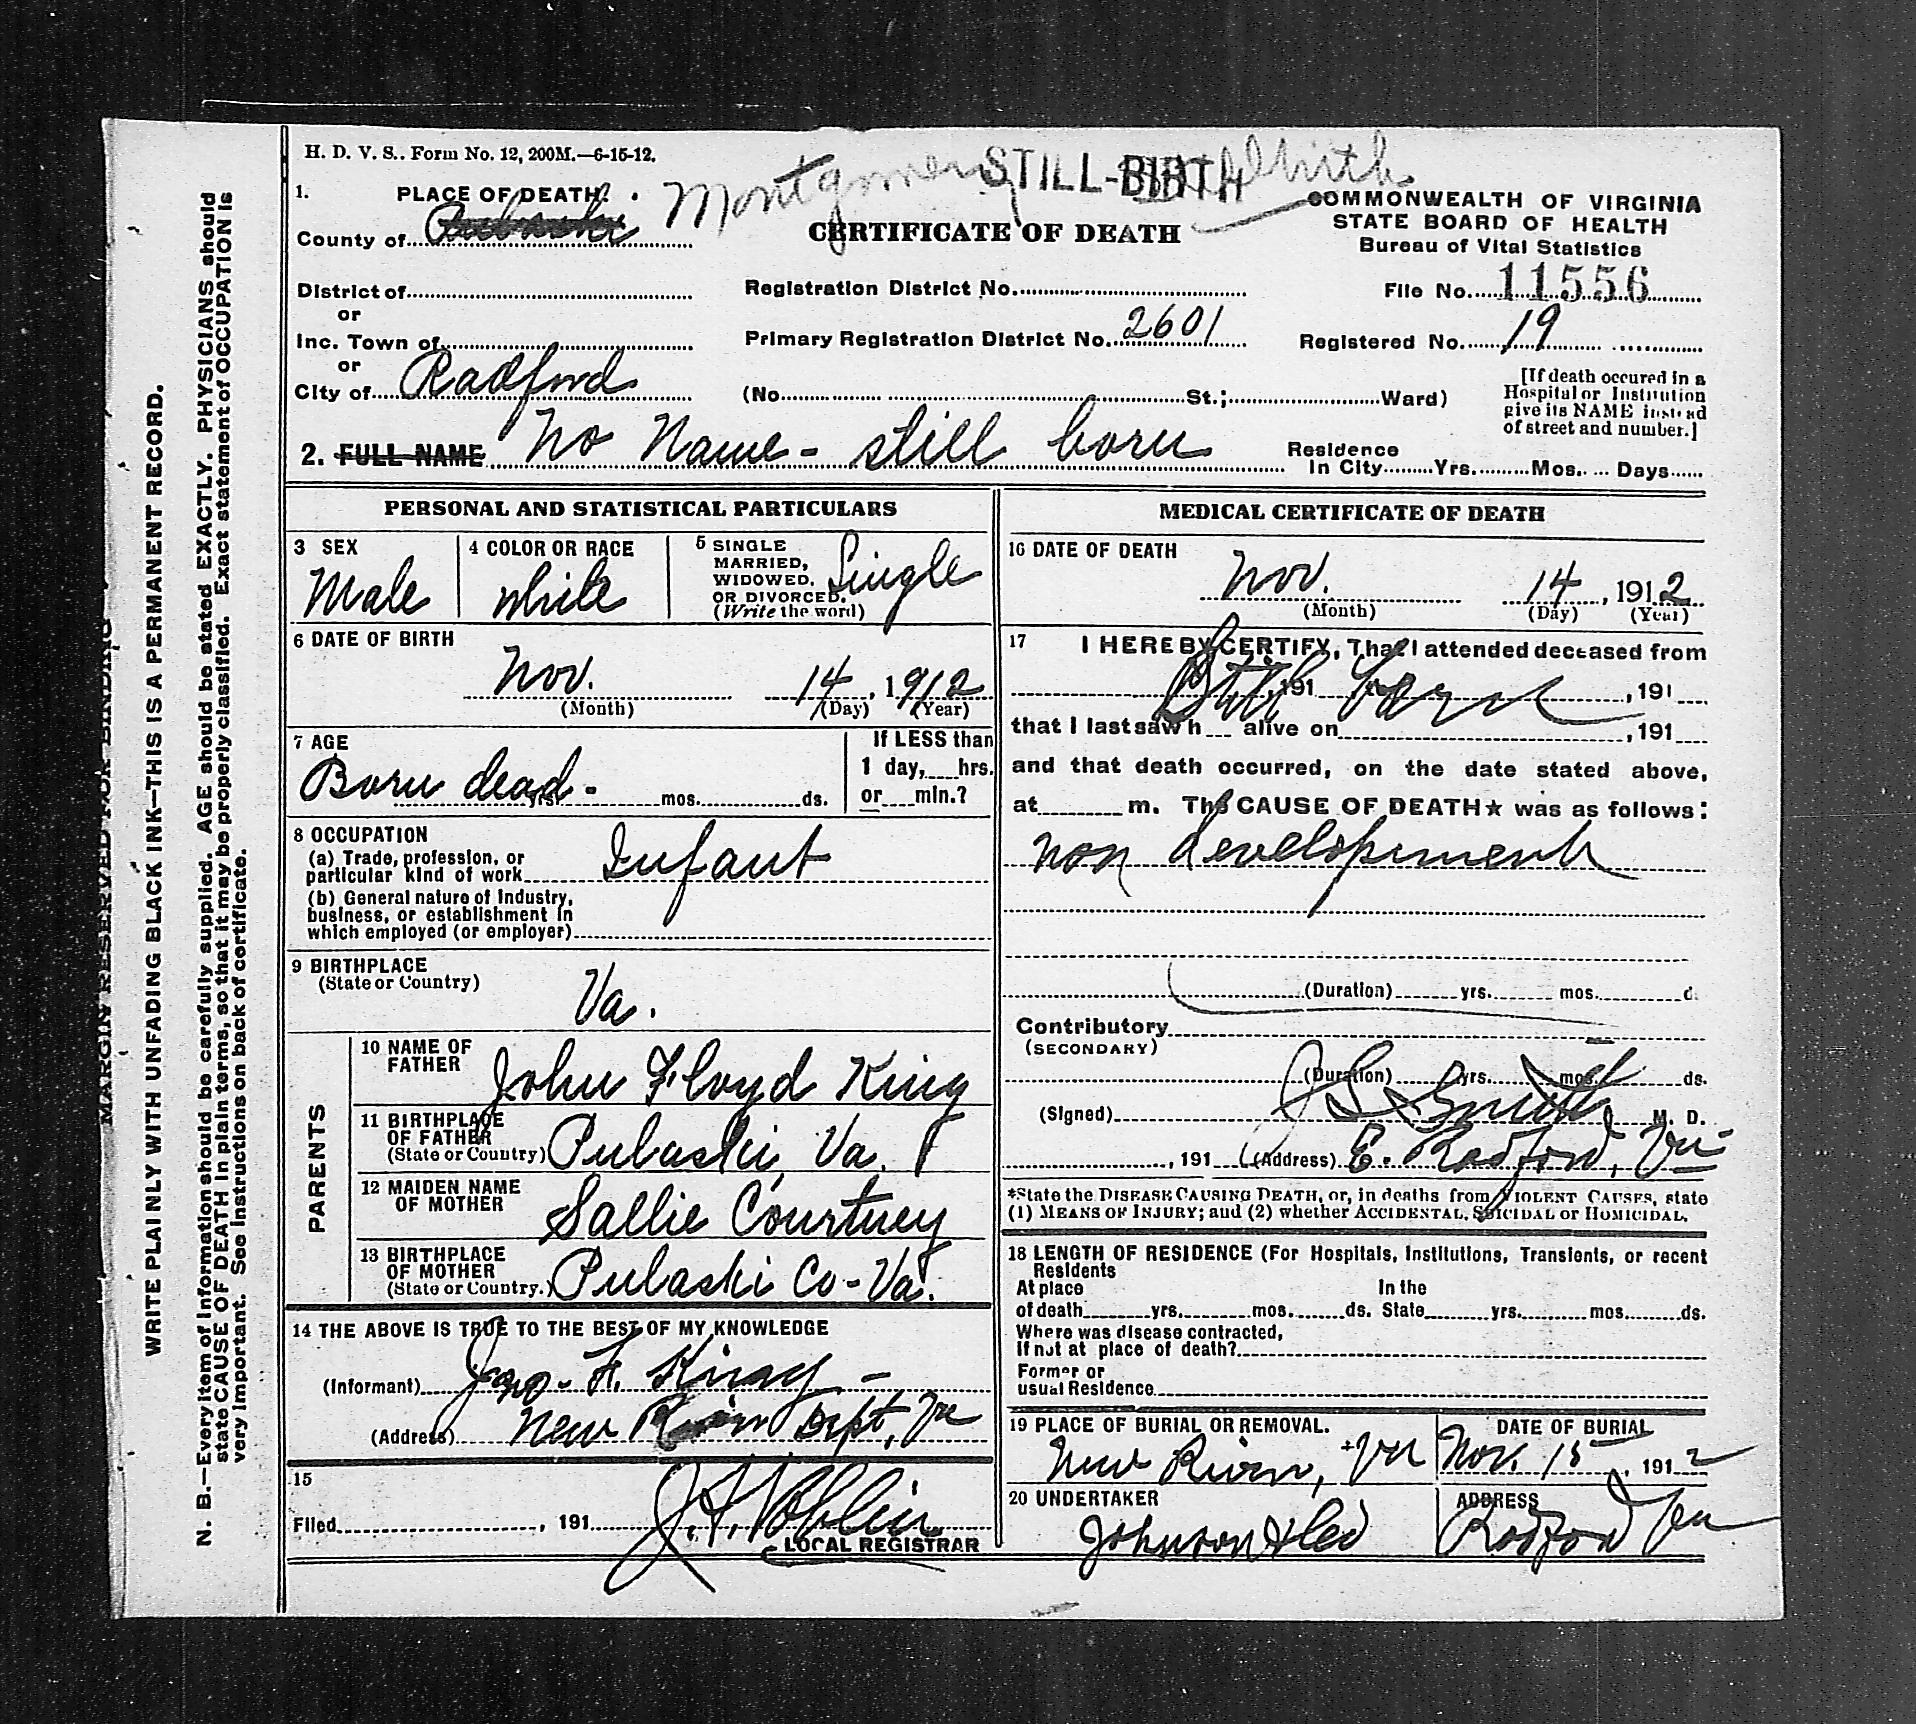 H. D. V. S.. Form No. 12, 200M.—6-15-12.
Montgomery
STILL-BIRTH
1. PLACE OF DEATH.
County of Pulaski
CERTIFICATE OF DEATH
COMMONWEALTH OF VIRGINIA
STATE BOARD OF HEALTH
Bureau of Vital Statistics
District of
Registration District No.
File No. 11556
or
Inc. Town of
Primary Registration District No. 2601
Registered No. 19
or
City of Radford
(No. St.; Ward)
[If death occured in a
Hospital or Institution
give its NAME instead
of street and number.]
2. FULL NAME No Name - still born
Residence
In City Yrs. Mos. Days
PERSONAL AND STATISTICAL PARTICULARS
3 SEX
Male
4 COLOR OR RACE
White
5 SINGLE
MARRIED,
WIDOWED,
OR DIVORCED.
(Write the word)
Single
6 DATE OF BIRTH
Nov. 14, 1912
(Month) (Day) (Year)
7 AGE
Born dead -
yrs. mos. ds.
If LESS than
1 day, hrs.
or min.?
8 OCCUPATION
(a) Trade, profession, or
particular kind of work Infant
(b) General nature of Industry,
business, or establishment in
which employed (or employer)
9 BIRTHPLACE
(State or Country)
Va.
PARENTS
10 NAME OF
FATHER
John Floyd King
11 BIRTHPLACE
OF FATHER
(State or Country) Pulaski, Va.
12 MAIDEN NAME
OF MOTHER
Sallie Courtney
13 BIRTHPLACE
OF MOTHER
(State or Country.) Pulaski Co - Va.
14 THE ABOVE IS TRUE TO THE BEST OF MY KNOWLEDGE
(Informant) Jno. F. King -
(Address) New River Dept, Va
15
Filed , 191
LOCAL REGISTRAR
MEDICAL CERTIFICATE OF DEATH
16 DATE OF DEATH
Nov. 14, 1912
(Month) (Day) (Year)
17 I HEREBY CERTIFY, That I attended deceased from
Still born
, 191 , 191
that I last saw h alive on , 191
and that death occurred, on the date stated above,
at m. The CAUSE OF DEATH★ was as follows:
non developement
(Duration) yrs. mos. d.
Contributory
(SECONDARY)
(Duration) yrs. mos. ds.
(Signed) J S Smith M. D.
, 191 (Address) E. Radford, Va
*State the DISEASE CAUSING DEATH, or, in deaths from VIOLENT CAUSES, state
(1) MEANS OF INJURY; and (2) whether ACCIDENTAL, SUICIDAL or HOMICIDAL.
18 LENGTH OF RESIDENCE (For Hospitals, Institutions, Transients, or recent
Residents
At place In the
of death yrs. mos. ds. State yrs. mos. ds.
Where was disease contracted,
If not at place of death?
Former or
usual Residence
19 PLACE OF BURIAL OR REMOVAL.
New River, Va
DATE OF BURIAL
Nov. 15, 1912
20 UNDERTAKER
Johnson
ADDRESS
Radford Va
MARGIN RESERVED FOR BINDING
WRITE PLAINLY WITH UNFADING BLACK INK—THIS IS A PERMANENT RECORD.
N. B.—Every item of information should be carefully supplied. AGE should be stated EXACTLY. PHYSICIANS should
state CAUSE OF DEATH in plain terms, so that it may be properly classified. Exact statement of OCCUPATION is
very important. See instructions on back of certificate.